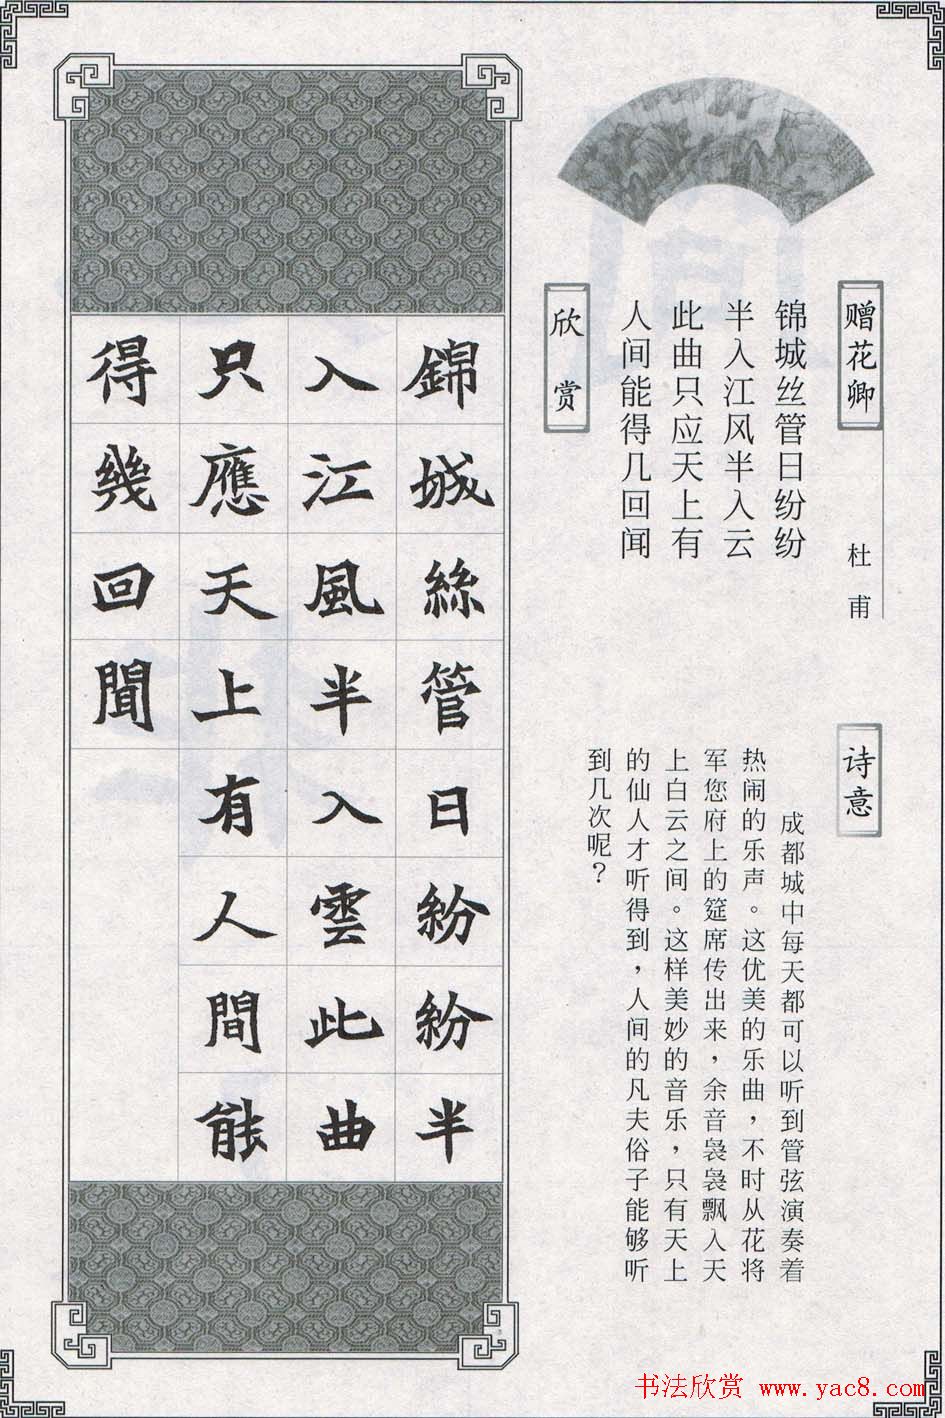 赠花卿
杜甫
锦城丝管日纷纷
半入江风半入云
此曲只应天上有
人间能得几回闻
诗意
成都城中每天都可以听到管弦演奏着
热闹的乐声。这优美的乐曲，不时从花将
军您府上的筵席传出来，余音袅袅飘入天
上白云之间。这样美妙的音乐，只有天上
的仙人才听得到，人间的凡夫俗子能够听
到几次呢？
欣赏
錦城絲管日紛紛半
入江風半入雲此曲
只應天上有人間能
得幾回聞
书法欣赏 www.yac8.com